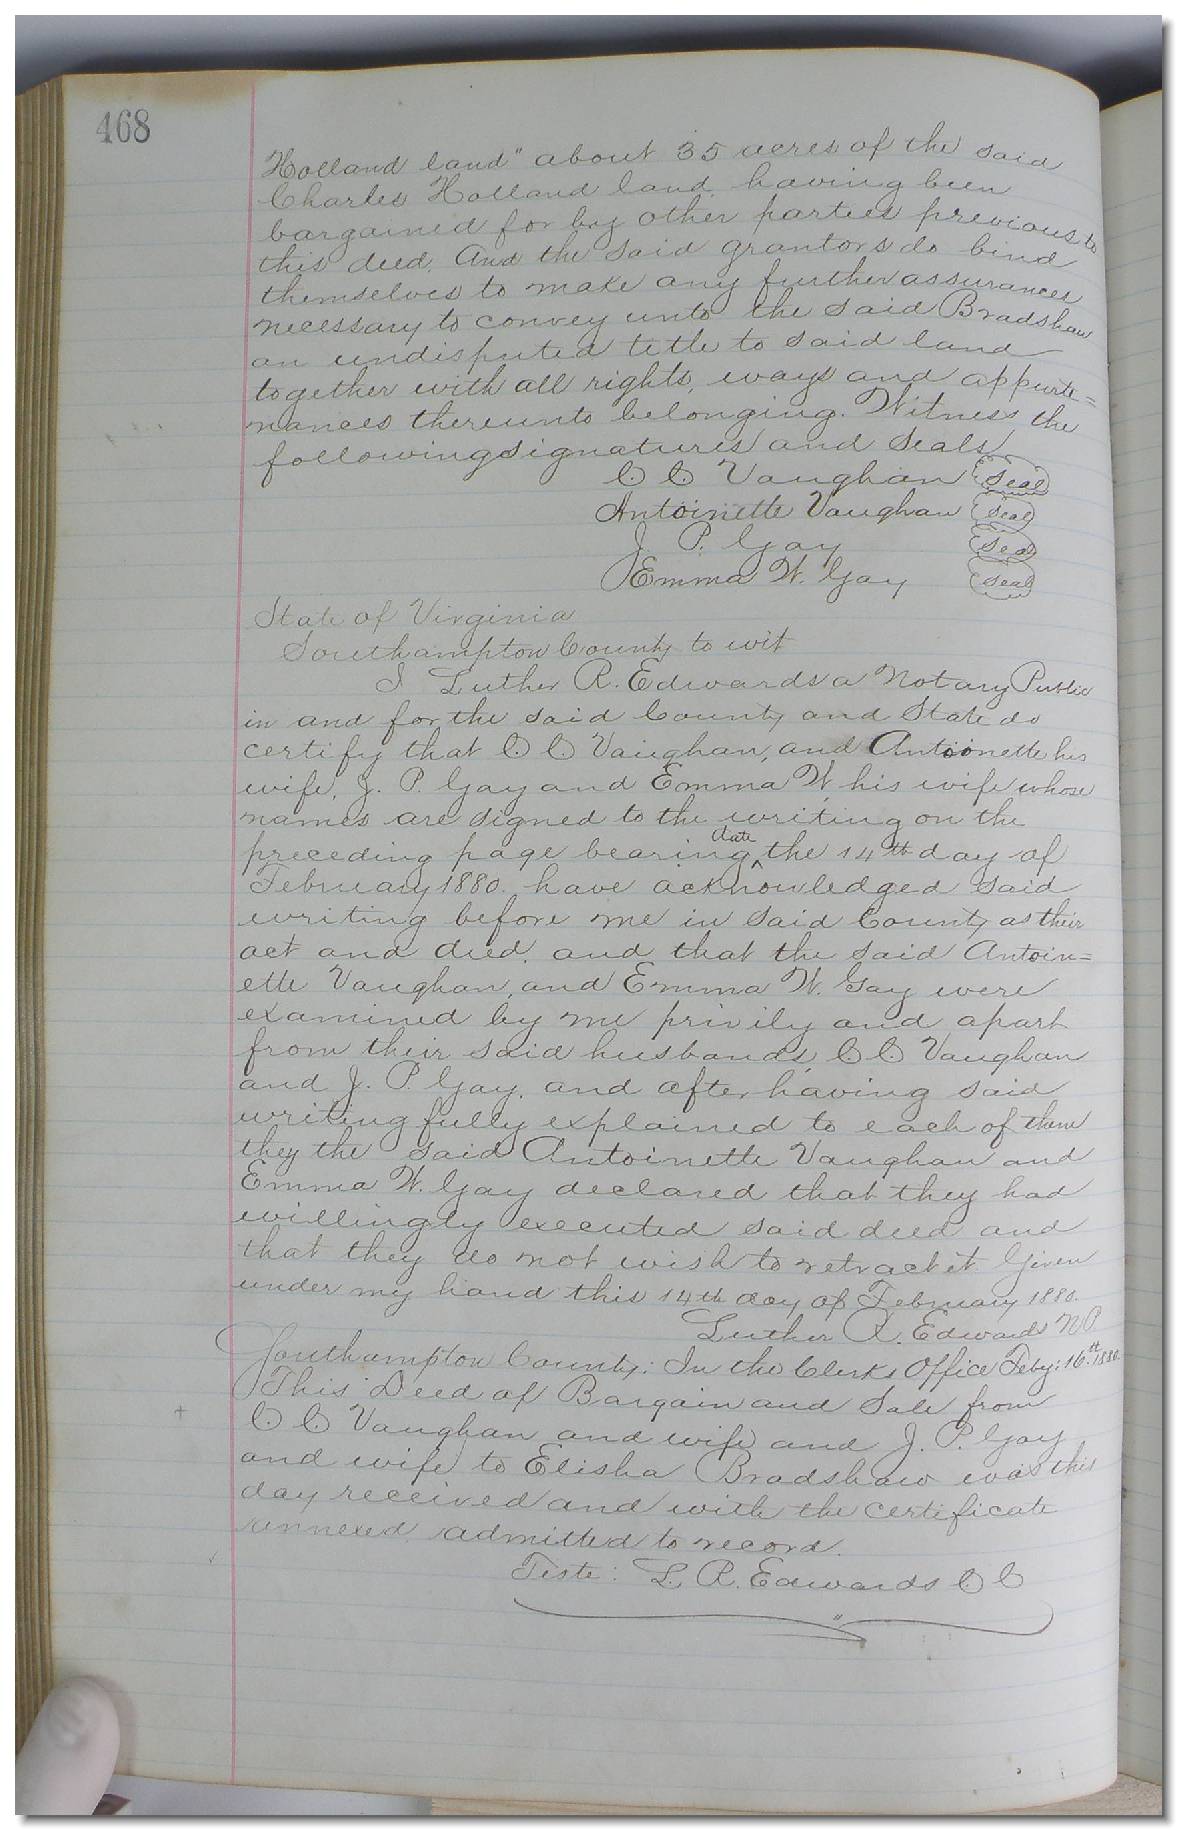 468
Holland land" about 35 acres of the said
Charles Holland land, having been
bargained for by other parties previous to
this deed. And the said grantors do bind
themselves to make any further assurances
necessary to convey unto the said Bradshaw
an undisputed title to said land
together with all rights, ways and appurte=
nances thereunto belonging. Witness the
following signatures and seals
C C Vaughan Seal
Antoinette Vaughan Seal
J. P. Gay Seal
Emma W. Gay Seal
State of Virginia
Southampton County to wit
I Luther R. Edwards a Notary Public
in and for the said County and State do
certify that C C Vaughan, and Antoinette his
wife, J. P. Gay and Emma W. his wife whose
names are signed to the writing on the
preceding page bearing date the 14th day of
February 1880. have acknowledged said
writing before me in said County as their
act and deed. and that the said Antoin=
ette Vaughan, and Emma W. Gay were
examined by me privily and apart
from their said husbands, C C Vaughan
and J. P. Gay, and after having said
writing fully explained to each of them
they the said Antoinette Vaughan and
Emma W. Gay declared that they had
willingly executed said deed and
that they do not wish to retract it Given
under my hand this 14th day of February 1880.
Luther R. Edwards N P
Southampton County: In the Clerks Office Feby: 16th 1880.
This Deed of Bargain and Sale from
C C Vaughan and wife and J. P. Gay
and wife to Elisha Bradshaw was this
day received and with the certificate
annexed admitted to record.
Teste: L. R. Edwards C C